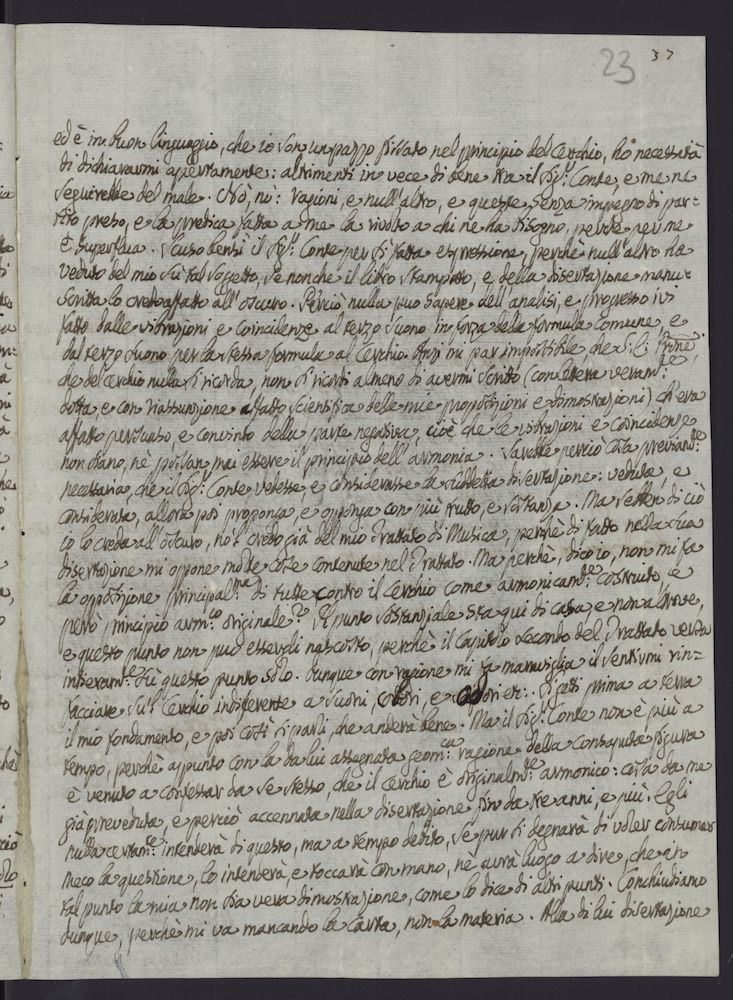 23 37
ed è in buon linguaggio, che io son un pazzo fissato nel principio del Cerchio, ho necessità
di dichiararmi apertamente: altrimenti in vece di bene tra il Sig.r Conte, e me ne
seguirebbe del male. Nò, nò: ragioni, e null'altro, e queste senza impegno di par=
tito preso, e la predica fatta a me la rivolto a chi ne ha bisogno, perchè per me
è superflua. Scuso bensì il Sig.r Conte per sì fatta espressione, perchè null'altro ha
veduto del mio sù tal soggetto, se non che il libro stampato, e della disertazione manu=
scritta lo credo affatto all'oscuro. Perciò nulla può sapere dell'analisi, e progresso ivi
fatto dalle vibrazioni e coincidenze al terzo suono in forza della formula comune, e
dal terzo suono per la stessa formula al Cerchio. Anzi mi par impossibile, che S. E.
che del Cerchio nulla si ricorda, non si ricordi almeno di avermi scritto (con lettera veram.te
dotta, e con riassunzione affatto scientifica delle mie proposizioni e dimostrazioni) ch'era
affatto persuaso, e convinto della parte negativa, cioè che le vibrazioni e coincidenze
non siano, nè possan mai essere il principio dell'armonia. Sarebbe perciò cosa previam.te
necessaria, che il Sig.r Conte vedesse, e considerasse la suddetta disertazione: veduta, e
considerata, allora poi proponga, e opponga con più frutto, e sostanza. Ma se ben di ciò
io lo creda all'oscuro, no'l credo già del mio Trattato di Musica, perchè di fatto nella sua
disertazione mi oppone molte cose contenute nel Trattato. Ma perchè, dico io, non mi fa
la opposizione principal.ma di tutte contro il Cerchio come armonicam.te costruito, e
però principio arm.co originale? Il punto sostanziale sta quì di casa, e non altrove,
e questo punto non può essergli nascosto, perchè il Capitolo secondo del Trattato versa
interam.te sù questo punto solo. Dunque con ragione mi fa maraviglia il sentirmi rin=
facciare su'l Cerchio indifferente a suoni, colori, e odori etc. Si getti prima a terra
il mio fondamento, e poi così si parli, che anderà bene. Ma il Sig.r Conte non è più a
tempo, perchè appunto con la da lui assegnata geom.ca ragione della consaputa figura
è venuto a confessar da se stesso, che il Cerchio è originalm.te armonico: cosa da me
già preveduta, e perciò accennata nella disertazione fin da tre anni, e più. Egli
nulla certam.te intenderà di questo, ma a tempo debito, se pur si degnarà di voler consumar
meco la questione, lo intenderà, e toccarà con mano, nè avrà luogo a dire, che in
tal punto la mia non sia vera dimostrazione, come lo dice di altri punti. Conchiudiamo
dunque, perchè mi va mancando la carta, non la materia. Alla di lui disertazione